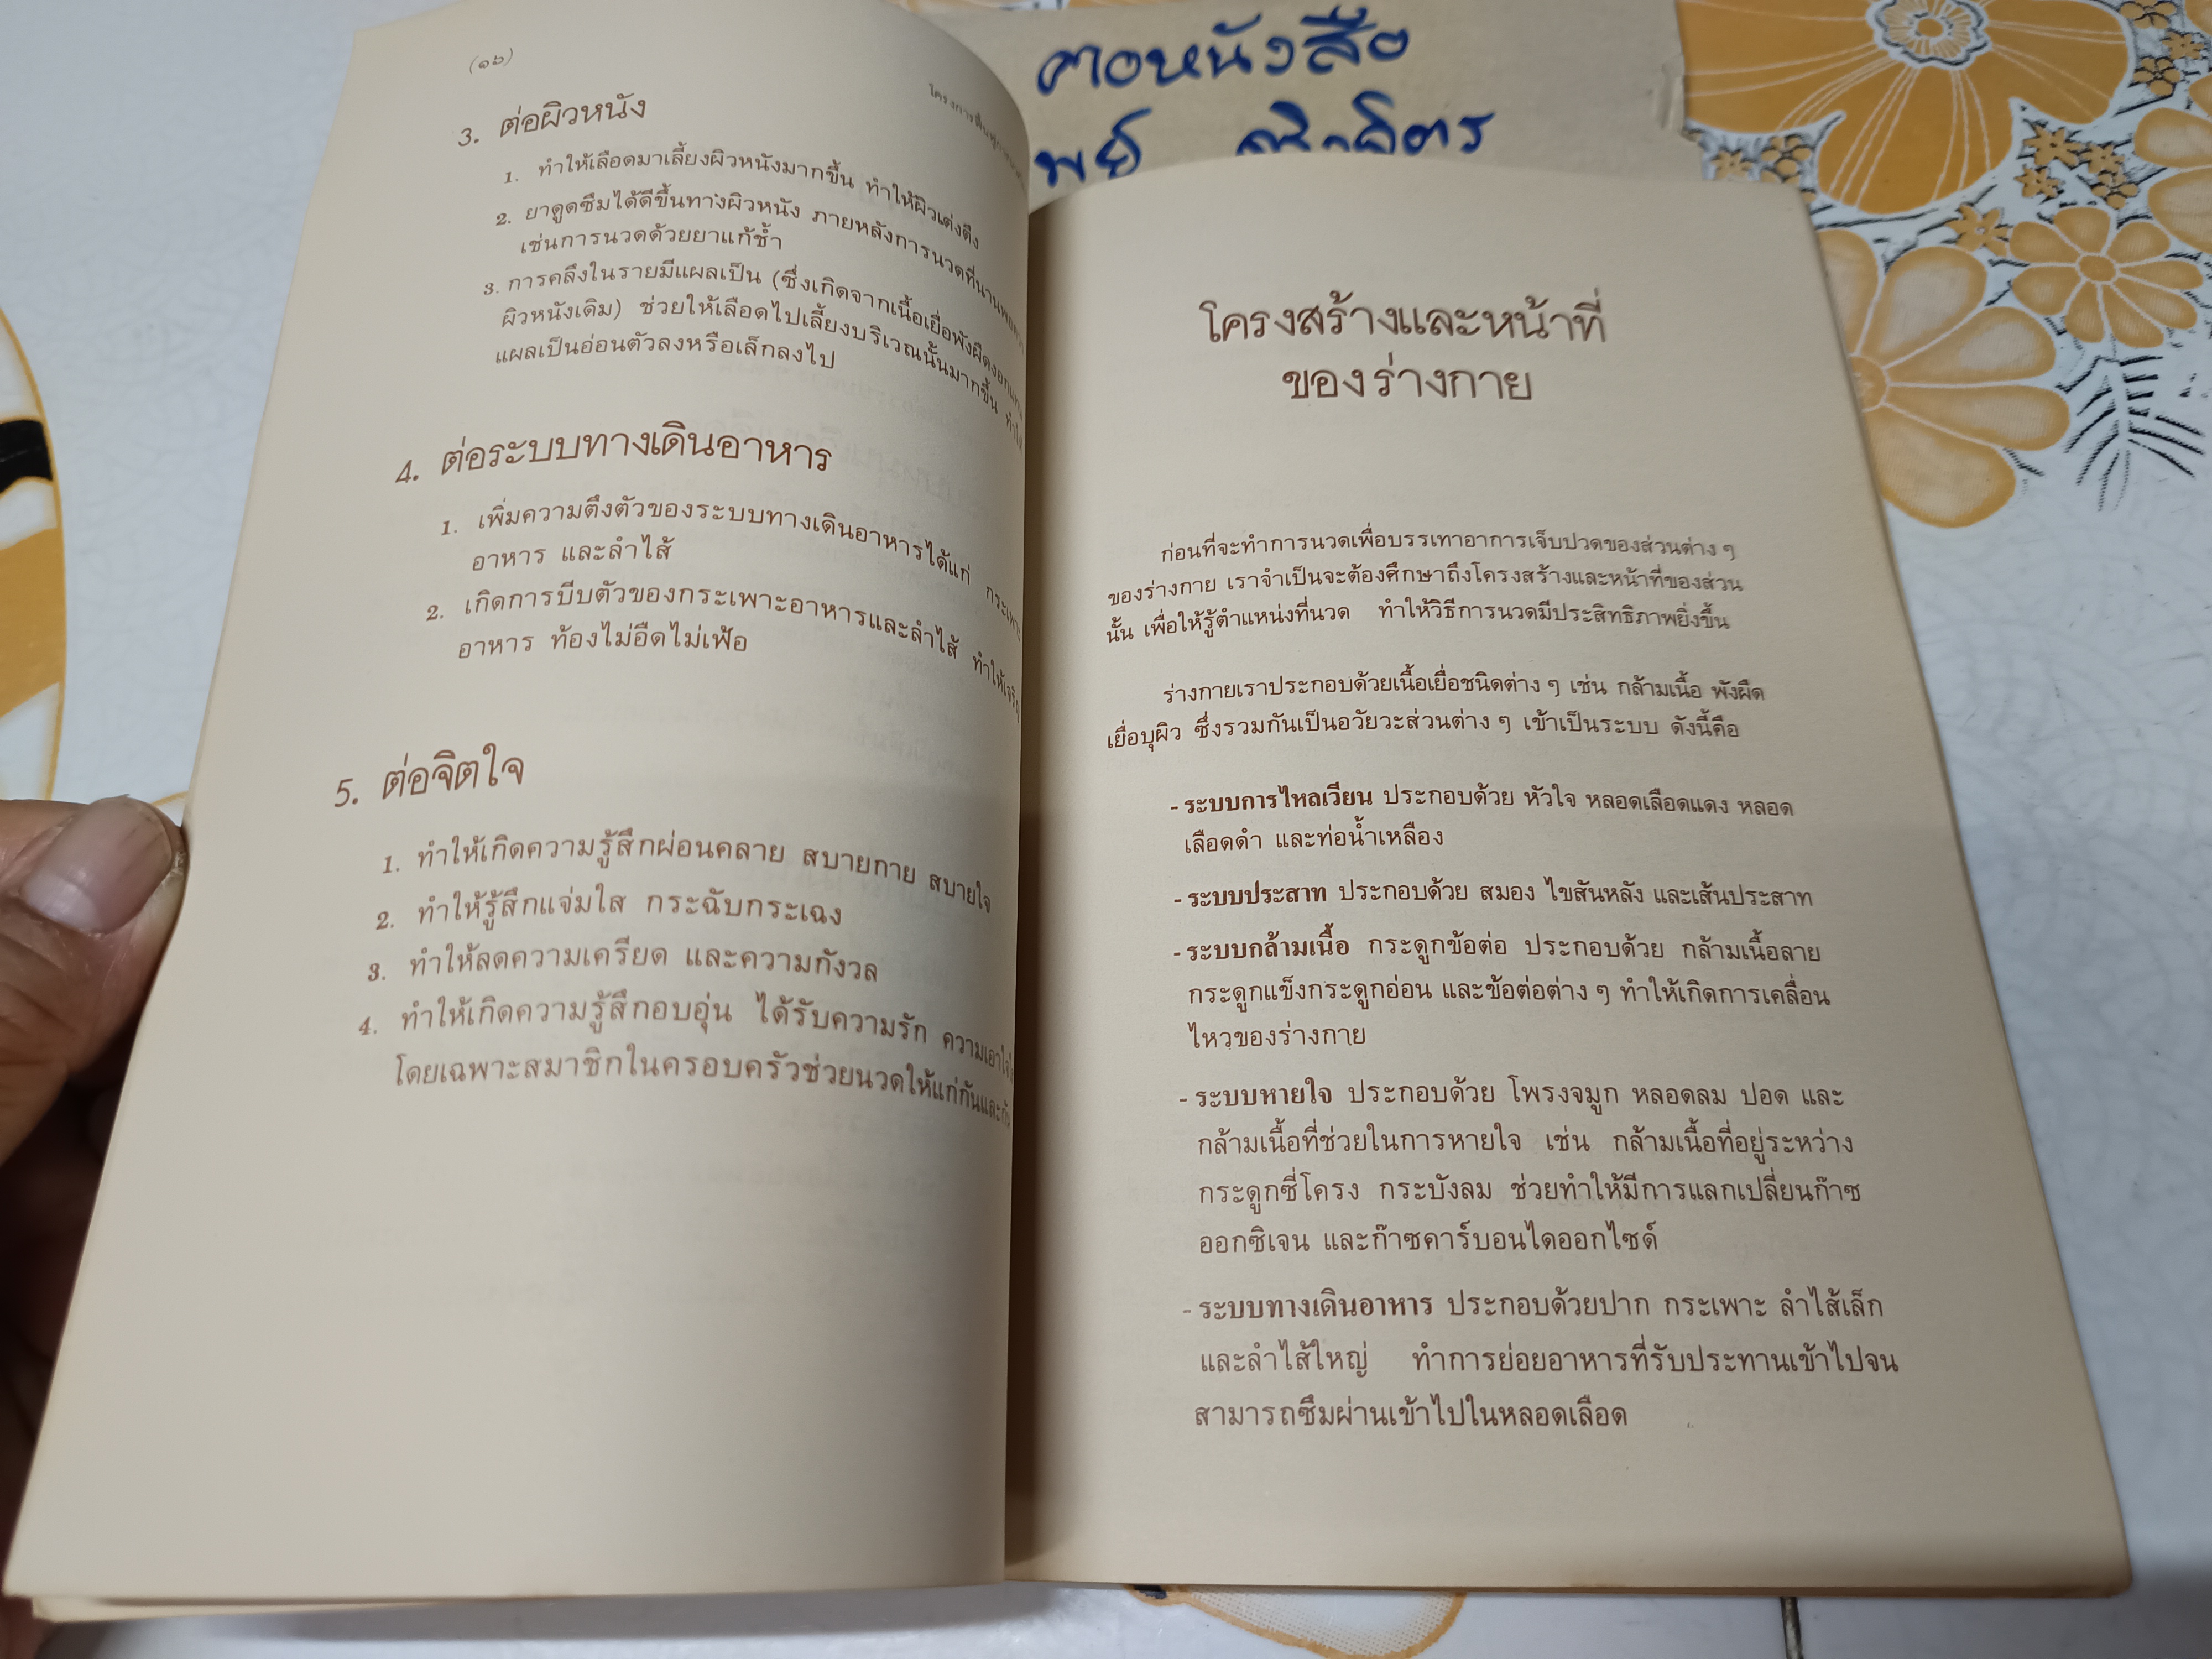 คอหนังสือ
(๑๖)
3. ต่อผิวหนัง
1. ทำให้เลือดมาเลี้ยงผิวหนังมากขึ้น ทำให้ผิวเต่งตึง
2. ยาดูดซึมได้ดีขึ้นทางผิวหนัง ภายหลังการนวดที่นานพอควร
เช่นการนวดด้วยยาแก้ช้ำ
3. การคลึงในรายมีแผลเป็น (ซึ่งเกิดจากเนื้อเยื่อพังผืดงอกแทน
ผิวหนังเดิม) ช่วยให้เลือดไปเลี้ยงบริเวณนั้นมากขึ้น ทำให้
แผลเป็นอ่อนตัวลงหรือเล็กลงไป
4. ต่อระบบทางเดินอาหาร
1. เพิ่มความตึงตัวของระบบทางเดินอาหารได้แก่ กระเพาะ
อาหาร และลำไส้
2. เกิดการบีบตัวของกระเพาะอาหารและลำไส้ ทำให้เจริญ
อาหาร ท้องไม่อืดไม่เฟ้อ
5. ต่อจิตใจ
1. ทำให้เกิดความรู้สึกผ่อนคลาย สบายกาย สบายใจ
2. ทำให้รู้สึกแจ่มใส กระฉับกระเฉง
3. ทำให้ลดความเครียด และความกังวล
4. ทำให้เกิดความรู้สึกอบอุ่น ได้รับความรัก ความเอาใจใส่
โดยเฉพาะสมาชิกในครอบครัวช่วยนวดให้แก่กันและกัน
โครงสร้างและหน้าที่
ของร่างกาย
ก่อนที่จะทำการนวดเพื่อบรรเทาอาการเจ็บปวดของส่วนต่าง ๆ
ของร่างกาย เราจำเป็นจะต้องศึกษาถึงโครงสร้างและหน้าที่ของส่วน
นั้น เพื่อให้รู้ตำแหน่งที่นวด ทำให้วิธีการนวดมีประสิทธิภาพยิ่งขึ้น
ร่างกายเราประกอบด้วยเนื้อเยื่อชนิดต่าง ๆ เช่น กล้ามเนื้อ พังผืด
เยื่อบุผิว ซึ่งรวมกันเป็นอวัยวะส่วนต่าง ๆ เข้าเป็นระบบ ดังนี้คือ
- ระบบการไหลเวียน ประกอบด้วย หัวใจ หลอดเลือดแดง หลอด
เลือดดำ และท่อน้ำเหลือง
- ระบบประสาท ประกอบด้วย สมอง ไขสันหลัง และเส้นประสาท
- ระบบกล้ามเนื้อ กระดูกข้อต่อ ประกอบด้วย กล้ามเนื้อลาย
กระดูกแข็งกระดูกอ่อน และข้อต่อต่าง ๆ ทำให้เกิดการเคลื่อน
ไหวของร่างกาย
- ระบบหายใจ ประกอบด้วย โพรงจมูก หลอดลม ปอด และ
กล้ามเนื้อที่ช่วยในการหายใจ เช่น กล้ามเนื้อที่อยู่ระหว่าง
กระดูกซี่โครง กระบังลม ช่วยทำให้มีการแลกเปลี่ยนก๊าซ
ออกซิเจน และก๊าซคาร์บอนไดออกไซด์
- ระบบทางเดินอาหาร ประกอบด้วยปาก กระเพาะ ลำไส้เล็ก
และลำไส้ใหญ่ ทำการย่อยอาหารที่รับประทานเข้าไปจน
สามารถซึมผ่านเข้าไปในหลอดเลือด